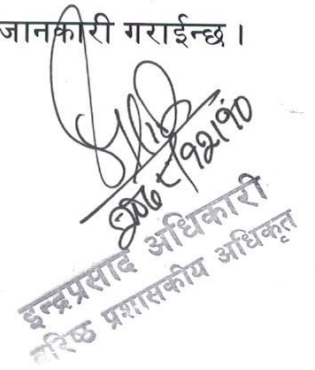 जानकारी गराईन्छ ।
इन्द्रप्रसाद अधिकारी
वरिष्ठ प्रशासकीय अधिकृत